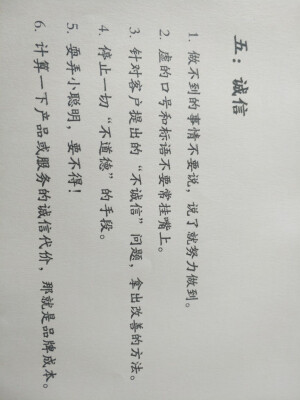 五：诚信
1. 做不到的事情不要说，说了就努力做到。
2. 虚的口号和标语不要常挂嘴上。
3. 针对客户提出的“不诚信”问题，拿出改善的方法。
4. 停止一切“不道德”的手段。
5. 耍弄小聪明，要不得！
6. 计算一下产品或服务的诚信代价，那就是品牌成本。